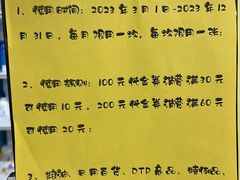 1、使用时间：2023年3月1-2023年12
月31日，每月限用一次，每次限用一张；
2、使用规则：100元代金券消费满30元
可使用10元，200元代金券消费满60元
可使用20元；
3、粮油、日用百货、DTP产品、